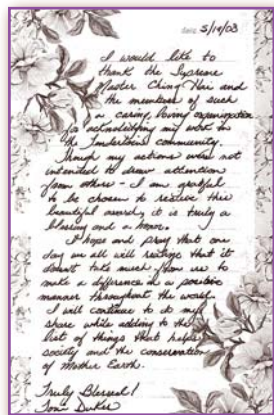 date 5/19/03
I would like to
thank the Supreme
Master Ching Hai and
the members of such
a caring, loving organization
for acknowledging my work in
the community.
Though my actions were not
intended to draw attention
from others - I am grateful
to be chosen to receive this
beautiful award, it is truly a
blessing and a honor.
I hope and pray that one
day we all will realize that it
doesn't take much from us to
make a difference in a positive
manner throughout the world.
I will continue to do my
share while adding to the
list of things that helps
society and the conservation
of Mother Earth.
Truly Blessed!
Tom